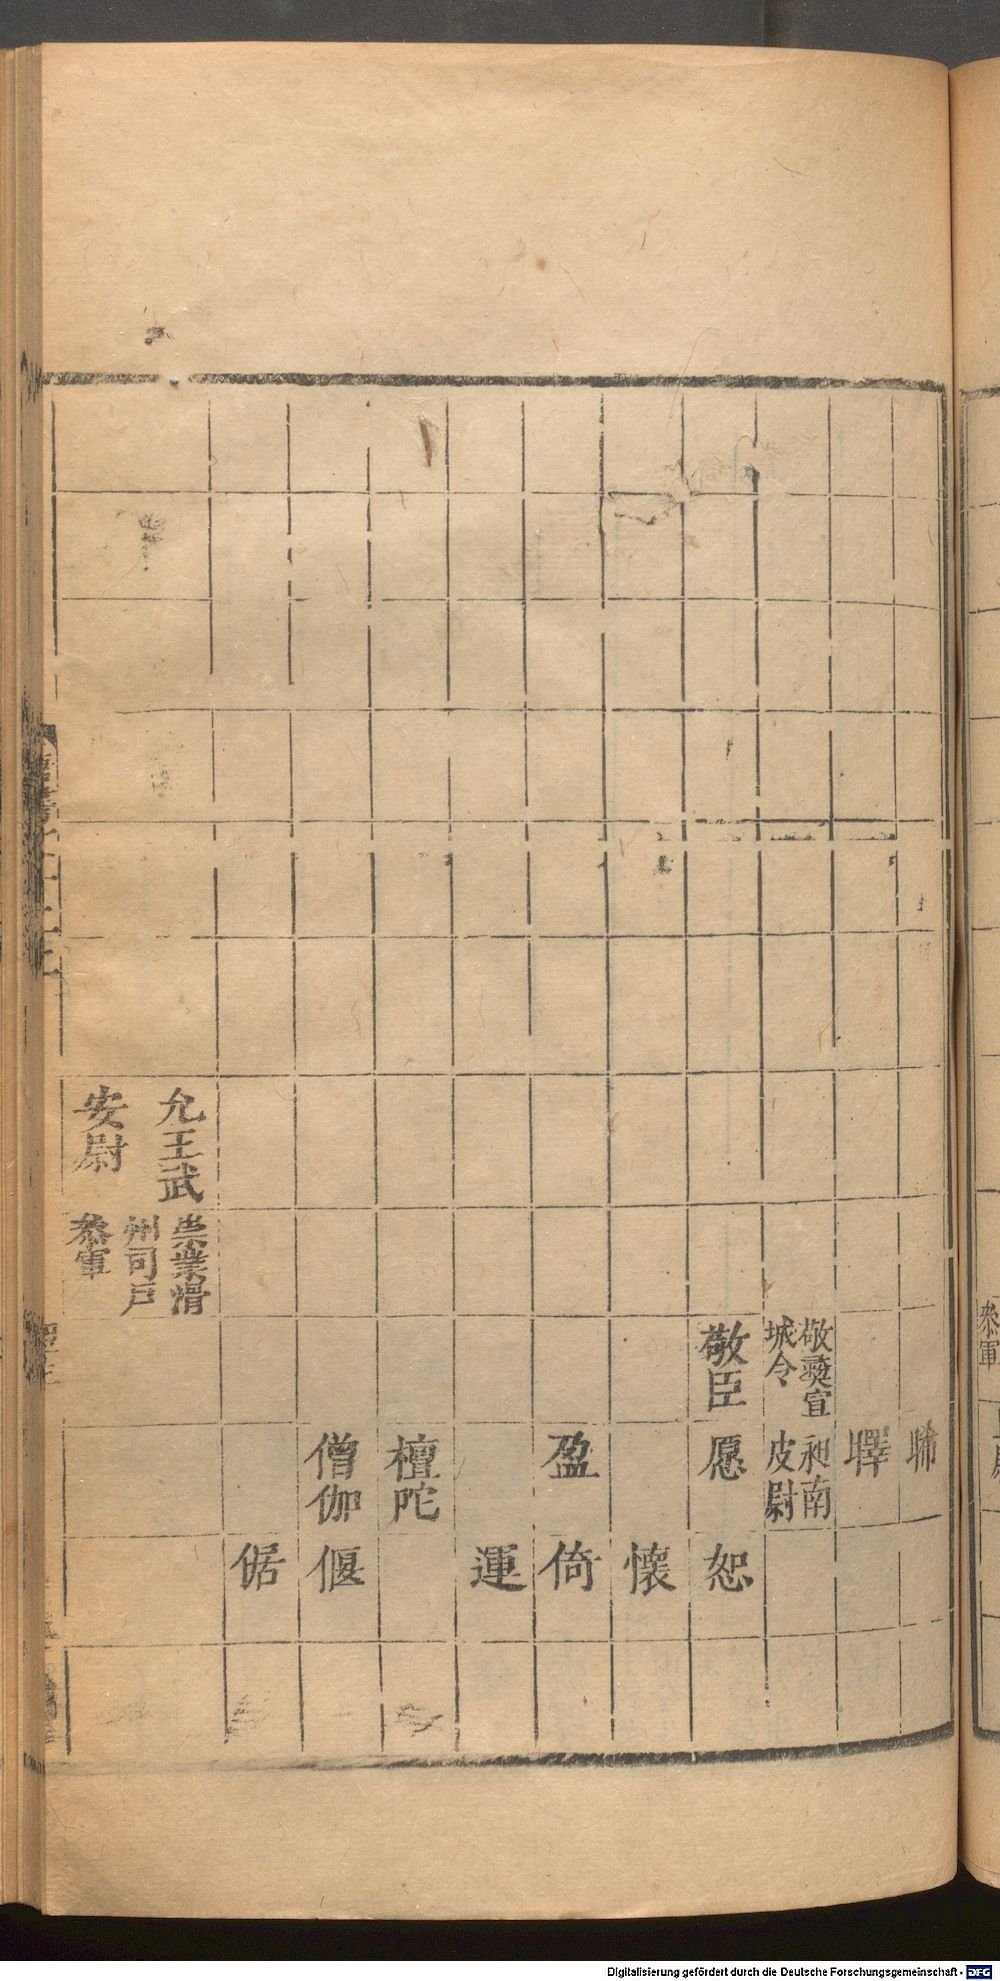 聠
驛
敬彛宣
城令
昶南
皮尉
敬臣
愿
恕
懷
盈
倚
運
檀陀
僧伽
偃
倨
允王武
安尉
崇業滑
州司戸
叅軍
叅軍
Digitalisierung gefördert durch die Deutsche Forschungsgemeinschaft - DFG